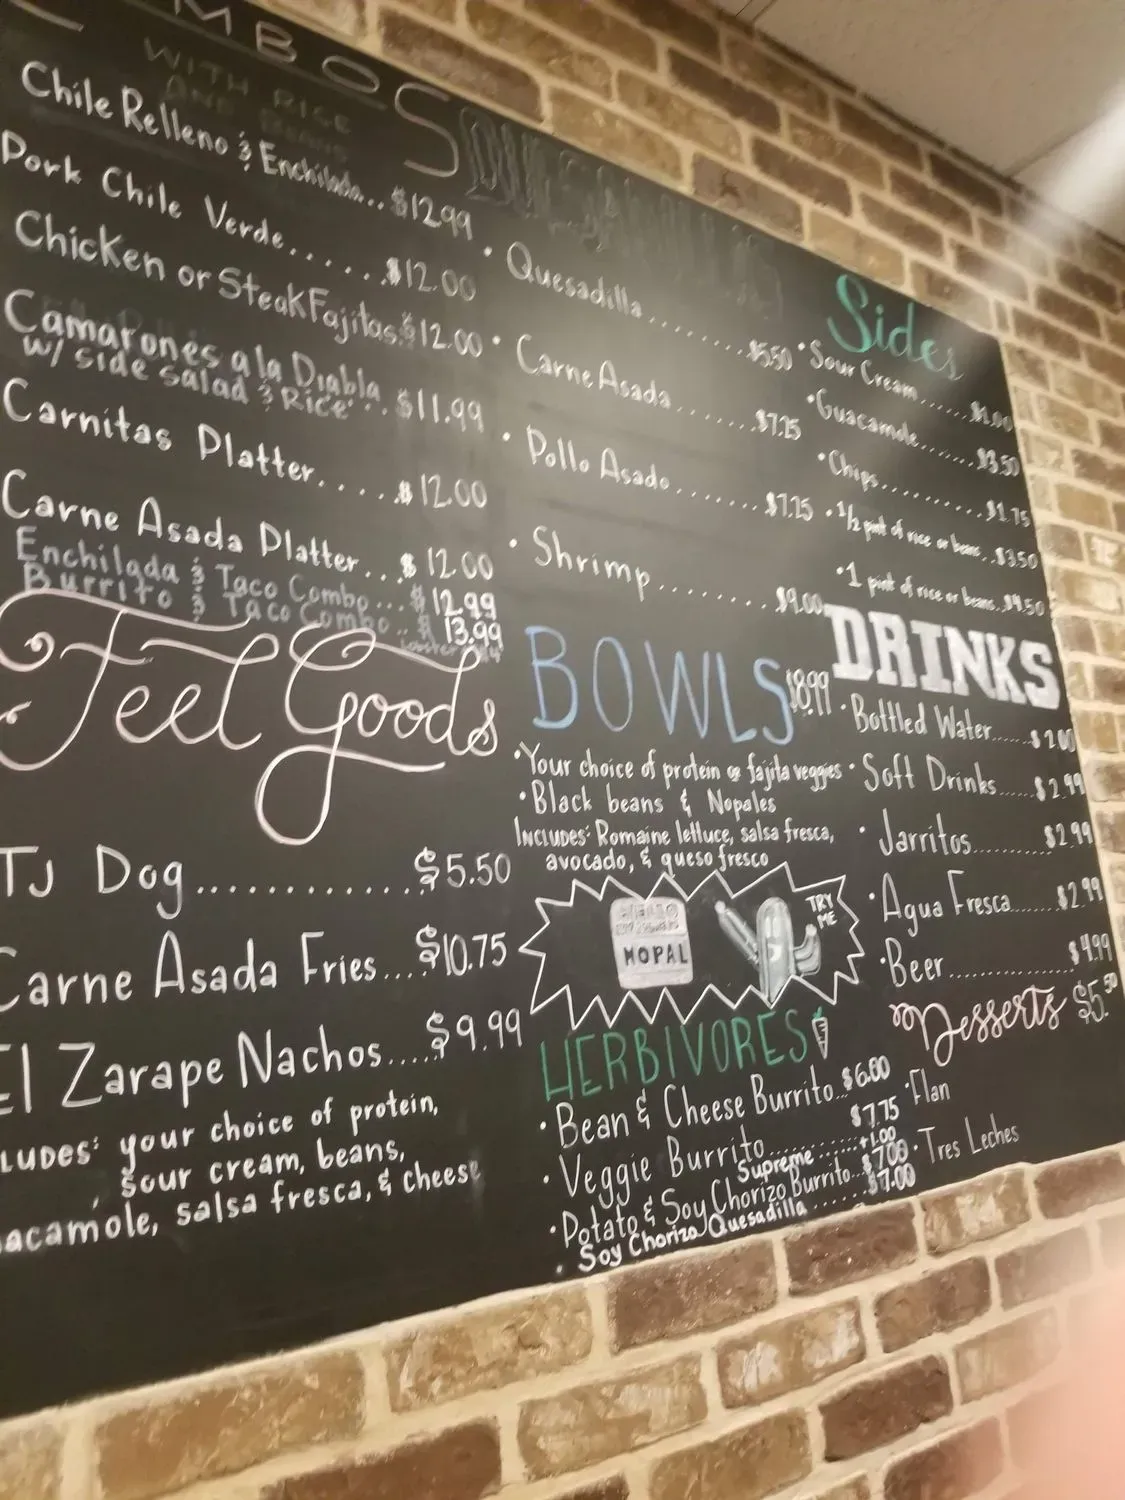 MBOS
WITH RICE
AND BEANS
Chile Relleno & Enchilada... $12.99
Pork Chile Verde....... $12.00
Chicken or Steak Fajitas. $12.00
Camarones a la Diabla .. $11.99
w/ side salad & Rice
Carnitas Platter..... $12.00
Carne Asada Platter... $12.00
Enchilada & Taco Combo... $12.99
Burrito & Taco Combo .. $13.99
Feel Goods
TJ Dog............. $5.50
Carne Asada Fries.... $10.75
El Zarape Nachos.... $9.99
LUDES: your choice of protein,
sour cream, beans,
acamole, salsa fresca, & cheese
• Quesadilla......... $5.50
• Carne Asada....... $7.25
• Pollo Asado....... $7.25
• Shrimp......... $9.00
BOWLS $8.99
• Your choice of protein or fajita veggies
• Black beans & Nopales
INCLUDES: Romaine lettuce, salsa fresca,
avocado, & queso fresco
NOPAL
TRY
ME
HERBIVORES
• Bean & Cheese Burrito... $6.00
• Veggie Burrito.......... $7.75
Supreme...... +1.00
• Potato & Soy Chorizo Burrito... $7.00
• Soy Chorizo Quesadilla ...... $7.00
Sides
• Sour Cream...... $1.00
• Guacamole....... $3.50
• Chips........... $1.75
• 1/2 pint of rice or beans.. $3.50
• 1 pint of rice or beans.. $4.50
DRINKS
• Bottled Water...... $2.00
• Soft Drinks...... $2.99
• Jarritos........... $2.99
• Agua Fresca....... $2.99
• Beer............... $4.99
Desserts $5.50
• Flan
• Tres Leches